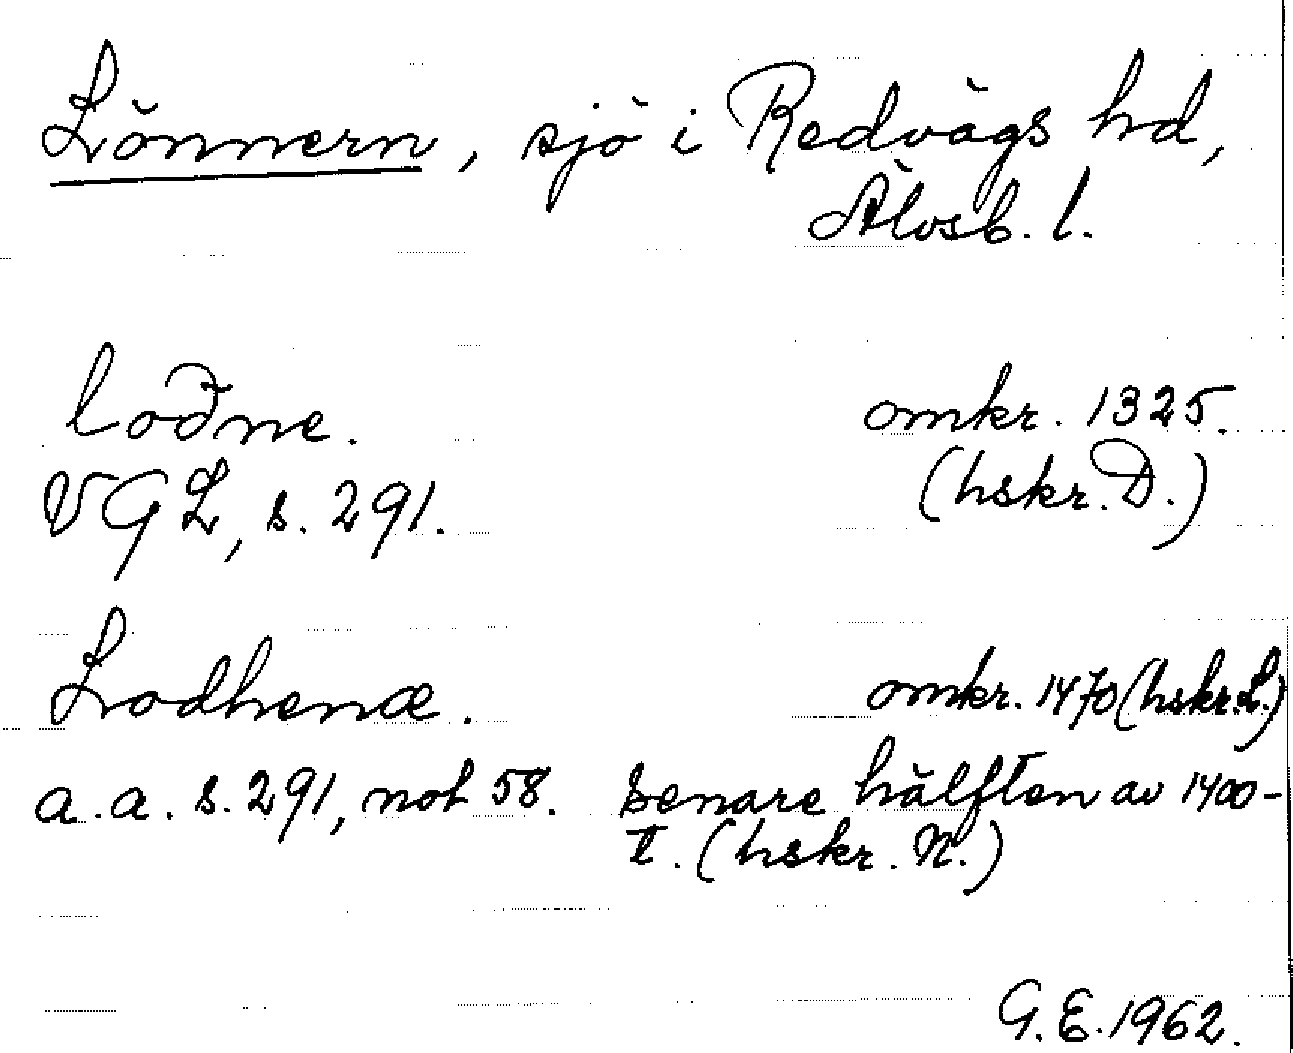 Lönnern, sjö i Redvägs hd,
Älvsb. l.
loðne. omkr. 1325.
VGL, s. 291. (hskr. D.)
Lodhenæ. omkr. 1470 (hskr. L.)
a. a. s. 291, not 58. senare hälften av 1400-
t. (hskr. N.)
G. E. 1962.